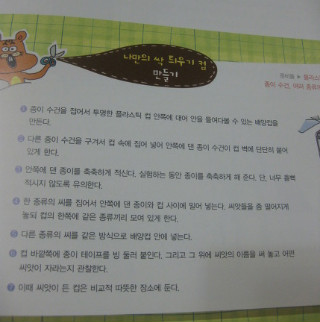 나만의 싹 틔우기 컵
만들기
준비물
종이 수건, 여러 종류
① 종이 수건을 접어서 투명한 플라스틱 컵 안쪽에 대어 안을 들여다볼 수 있는 배양컵을
만든다.
② 다른 종이 수건을 구겨서 컵 속에 집어 넣어 안쪽에 댄 종이 수건이 컵 벽에 단단히 붙어
있게 한다.
③ 안쪽에 댄 종이를 축축하게 적신다. 실험하는 동안 종이를 축축하게 해 준다. 단, 너무 흠뻑
적시지 않도록 유의한다.
④ 한 종류의 씨를 집어서 안쪽에 댄 종이와 컵 사이에 밀어 넣는다. 씨앗들을 좀 떨어지게
놓되 컵의 한쪽에 같은 종류끼리 모여 있게 한다.
⑤ 다른 종류의 씨를 같은 방식으로 배양컵 안에 넣는다.
⑥ 컵 바깥쪽에 종이 테이프를 빙 둘러 붙인다. 그리고 그 위에 씨앗의 이름을 써 놓고 어떤
씨앗이 자라는지 관찰한다.
⑦ 이때 씨앗이 든 컵은 비교적 따뜻한 장소에 둔다.